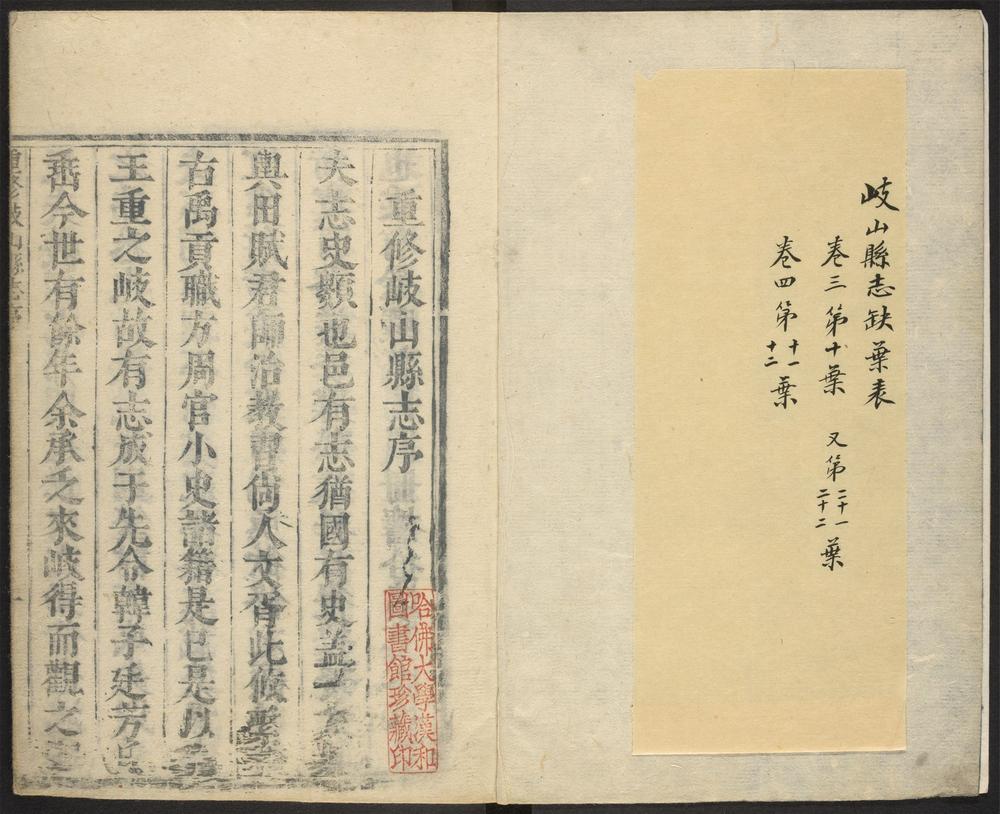 岐山縣志缺葉表
卷三第十葉 又第二十一二十二葉
卷四第十一十二葉
重修岐山縣志序
夫志史類也邑有志猶國有史蓋
輿田賦君師治教習尙人文胥此攸繫
古禹貢職方周官小史諸籍是已是以
王重之岐故有志成于先令韓子廷芳
今世有餘年余承乏來岐得而觀之
重修岐山縣志序
一
哈佛大學漢和
圖書館珍藏印